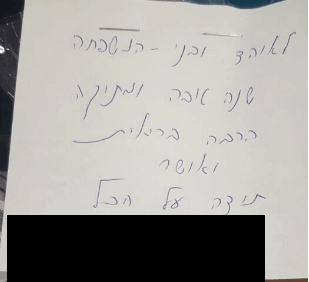 לאוהד ובני-המשפחה
שנה טובה ומתוקה
הרבה בריאות
ואושר
תודה על הכל